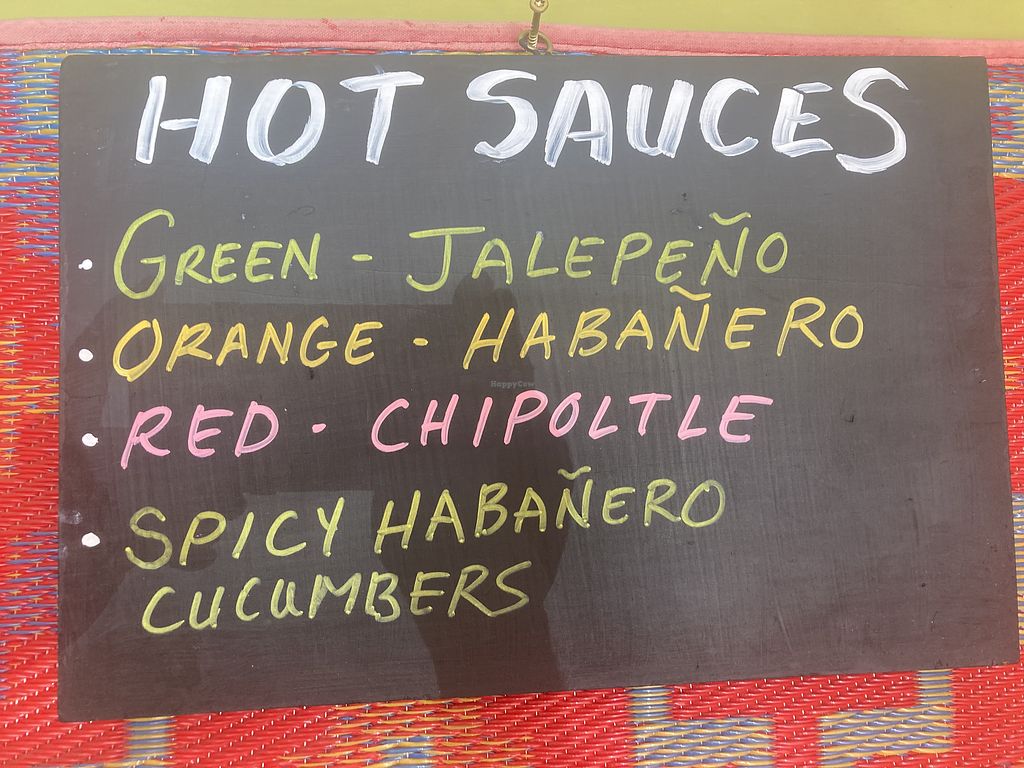 HOT SAUCES
GREEN - JALEPEÑO
ORANGE - HABAÑERO
RED - CHIPOLTLE
SPICY HABAÑERO
CUCUMBERS
HappyCow